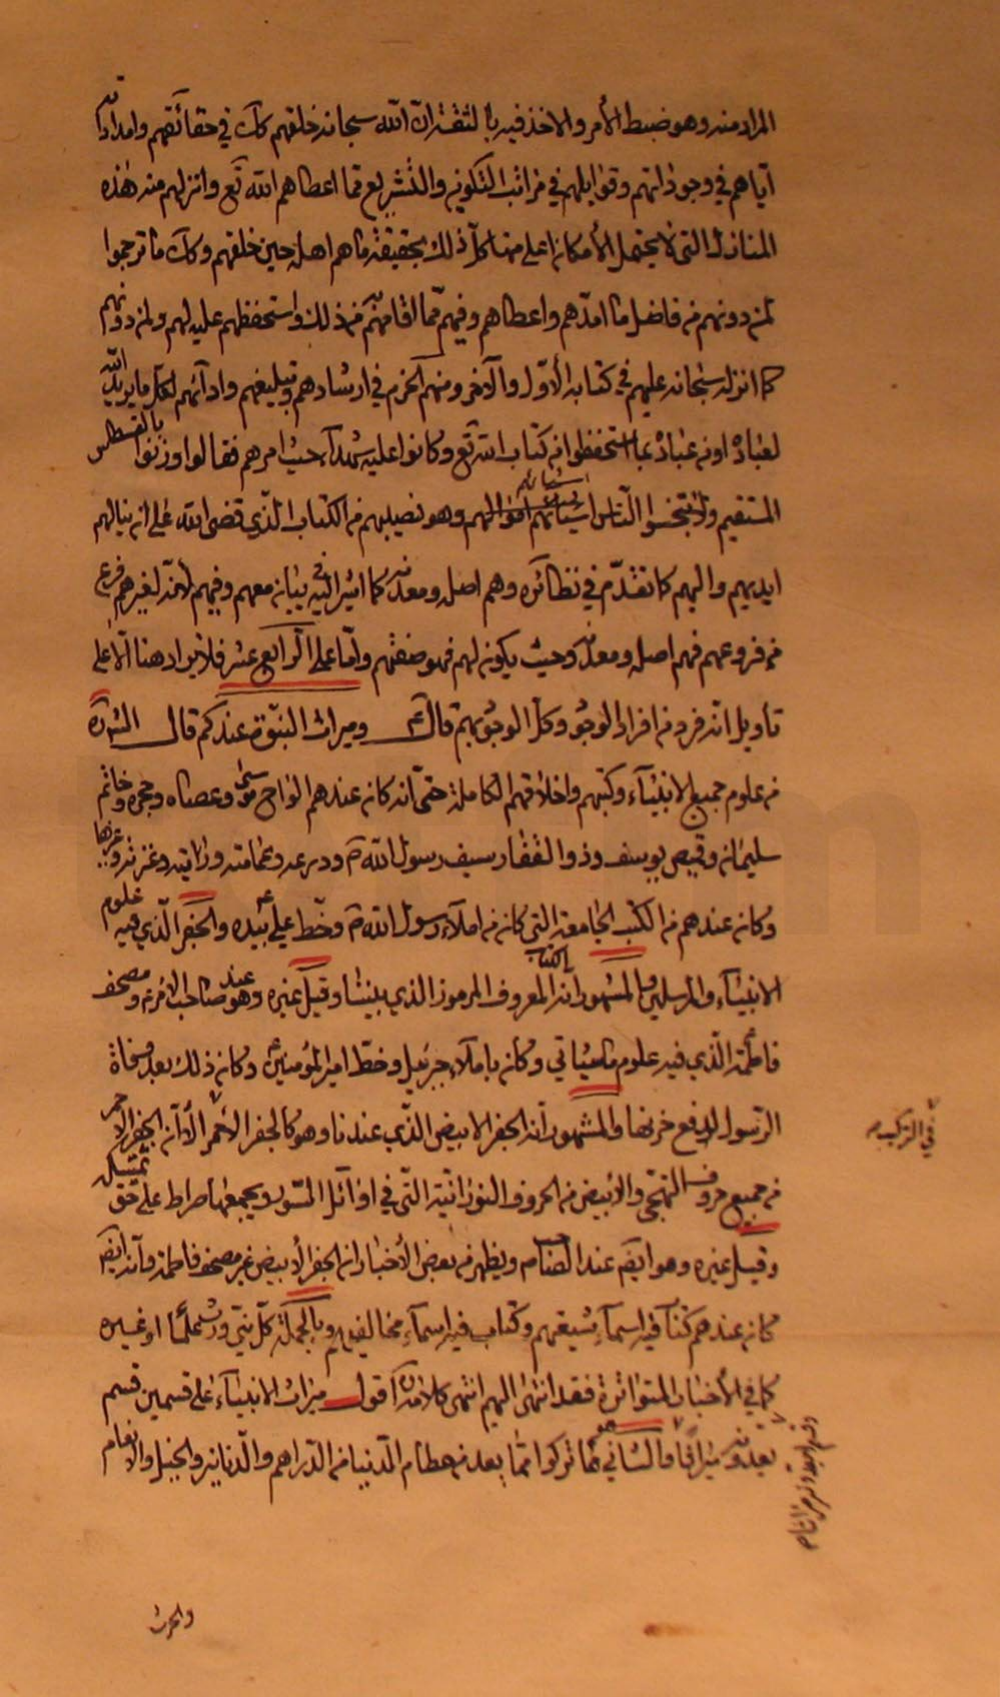 المراد منه وهو ضبط الأمر والاخذ فيه بالثقة ان الله سبحانه خلقهم كك في حقائقهم وامداداته
اياهم في وجوداتهم وقوابلهم في مراتب التكوين والتشريع مما اعطاهم الله تع وانزلهم منه هذه
المنازل التي لا يحتمل الأمكان اعلى منها كل ذلك بحقيقة ما هم اهله حين خلقهم وكك ما ترجموا
لمن دونهم من فاضل ما امدهم واعطاهم وفيهم مما اقامهم من ذلك واستحفظهم عليه لهم ولمن دونهم
كما انزله سبحانه عليهم في كتابه الأول والآخر ومنهم الحزم في ارشادهم وتبليغهم وادآئهم لكل ما يريد الله
لعباده او من عباده بما استحفظوا من كتاب الله تع وكانوا عليه شهدآء حيث امرهم فقالوا وزنوا بالقسطاس
المستقيم ولا تبخسوا الناس اشيائهم وهو نصيبهم من الكتاب الذي قضى الله على ان ينالهم
ايديهم واليهم كما تقدم في نظائره وهم اصله ومعدنه كما اشير اليه في بيان معهم وفيهم لأنه لغيرهم فرع
من فروعهم فهم اصله ومعدنه وحيث يكون لهم فهو صفتهم واما على الرابع عشر فلا يراد هنا الا على
تأويل انه فرد من افراد الوجود وكل الوجود بهم قال ع وميراث النبوة عندكم قال الش ره
من علوم جميع الانبيآء وكتبهم واخلاقهم الكاملة حتى انه كان عندهم الواح موسى وعصاه وحجره وخاتم
سليمان وقميص يوسف وذو الفقار سيف رسول الله ص ودرعه وعمامته ورايته وعنزته وغيرها
وكان عندهم من الكتب الجامعة التي كان من املآء رسول الله ص وخط علي ع بيده والجفر الذي فيه علوم
الانبيآء والمرسلين والمشهور انه الكتاب المعروف المرموز الذي بيننا وقيل غيره وهو عند صاحب الامر ع ومصحف
فاطمة ع الذي فيه علوم ما سيأتي وكان باملآء جبرئيل وخط امير المؤمنين ع وكان ذلك بعد وفاة
الرسول لدفع حزنها والمشهور انه الجفر الابيض الذي عندنا وهو كالجفر الأحمر الا أن الجفر الاحمر
من جميع حروف التهجي والأبيض من الحروف النورانية التي في اوآئل السور ويجمعها صراط علي حق نمسكه
وقيل غيره وهو ايضا عند القائم ويظهر من بعض الأخبار ان الجفر الأبيض غير مصحف فاطمة وأنه ايض
كان عندهم كتاب فيه اسمآء شيعتهم وكتاب فيه اسمآء مخالفيهم وبالجملة كل نبي ورث علما او غيره
كما في الأخبار المتواترة فقد انتهى اليهم انتهى كلامه اقول ميراث الانبيآء على قسمين قسم
يعدونه ميراثا فالثاني هو ما تركوا مما يعد من حطام الدنيا من الدراهم والدنانير والخيل والانعام
في التركيب
والحرث